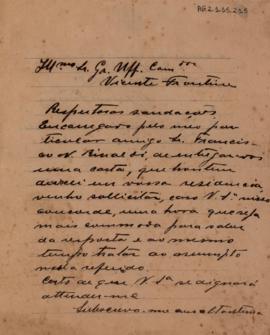 AG2.1.55.255
Illmo Sr. Gr. Uff. Comdor
Vicente Frontini
Respeitosas saudações
Encarregado pelo meu par
ticular amigo Sr. Francis
co N. Rinaldi, de entregar vos
uma carta, que hontem
deixei em vossa residencia
venho sollicitar, caso V. Sa nisso
concorde, uma hora que seja
mais commoda para saber
da resposta e ao mesmo
tempo tratar do assumpto
nesta referido.
Certo de que V. Sa se dignará
attender-me
Subscrevo-me